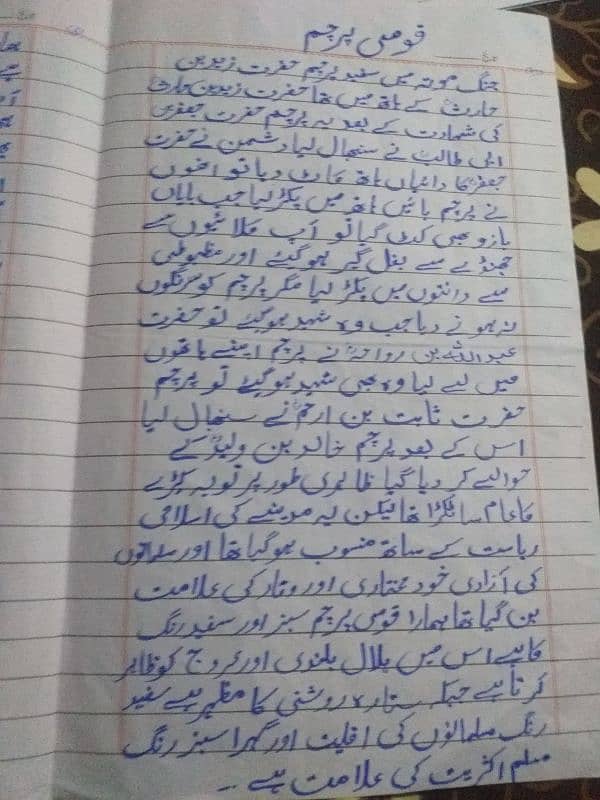 قومی پرچم
جنگ موتہ میں سفید پرچم حضرت زید بن
حارثؓ کے ہاتھ میں تھا حضرت زید بن حارثؓ
کی شہادت کے بعد یہ پرچم حضرت جعفر بن
ابی طالبؓ نے سنبھال لیا دشمن نے حضرت
جعفرؓ کا دائیاں ہاتھ کاٹ دیا تو انھوں
نے پرچم بائیں ہاتھ میں پکڑ لیا جب بایاں
بازو بھی کٹ گیا تو آپ کلائیوں سے
جھنڈے سے بغل گیر ہوگئے اور مظبوطی
سے دانتوں میں پکڑ لیا مگر پرچم کو سرنگوں
نہ ہونے دیا جب وہ شہید ہوگئے تو حضرت
عبداللہ بن رواحہؓ نے پرچم اپنے ہاتھوں
میں لے لیا وہ بھی شہید ہوگئے تو پرچم
حضرت ثابت بن ارقمؓ نے سنبھال لیا
اس کے بعد پرچم خالد بن ولیدؓ کے
حوالے کر دیا گیا ظاہری طور پر تو یہ کپڑے
کا عام سا ٹکڑا تھا لیکن یہ مدینے کی اسلامی
ریاست کے ساتھ منسوب ہوگیا تھا اور مسلمانوں
کی آزادی خود مختاری اور وقار کی علامت
بن گیا تھا ہمارا قومی پرچم سبز اور سفید رنگ
کا ہے اس میں ہلال بلندی اور عروج کو ظاہر
کرتا ہے جبکہ ستارہ روشنی کا مظہر ہے سفید
رنگ مسلمانوں کی اقلیت اور گہرا سبز رنگ
مسلم اکثریت کی علامت ہے ۔۔